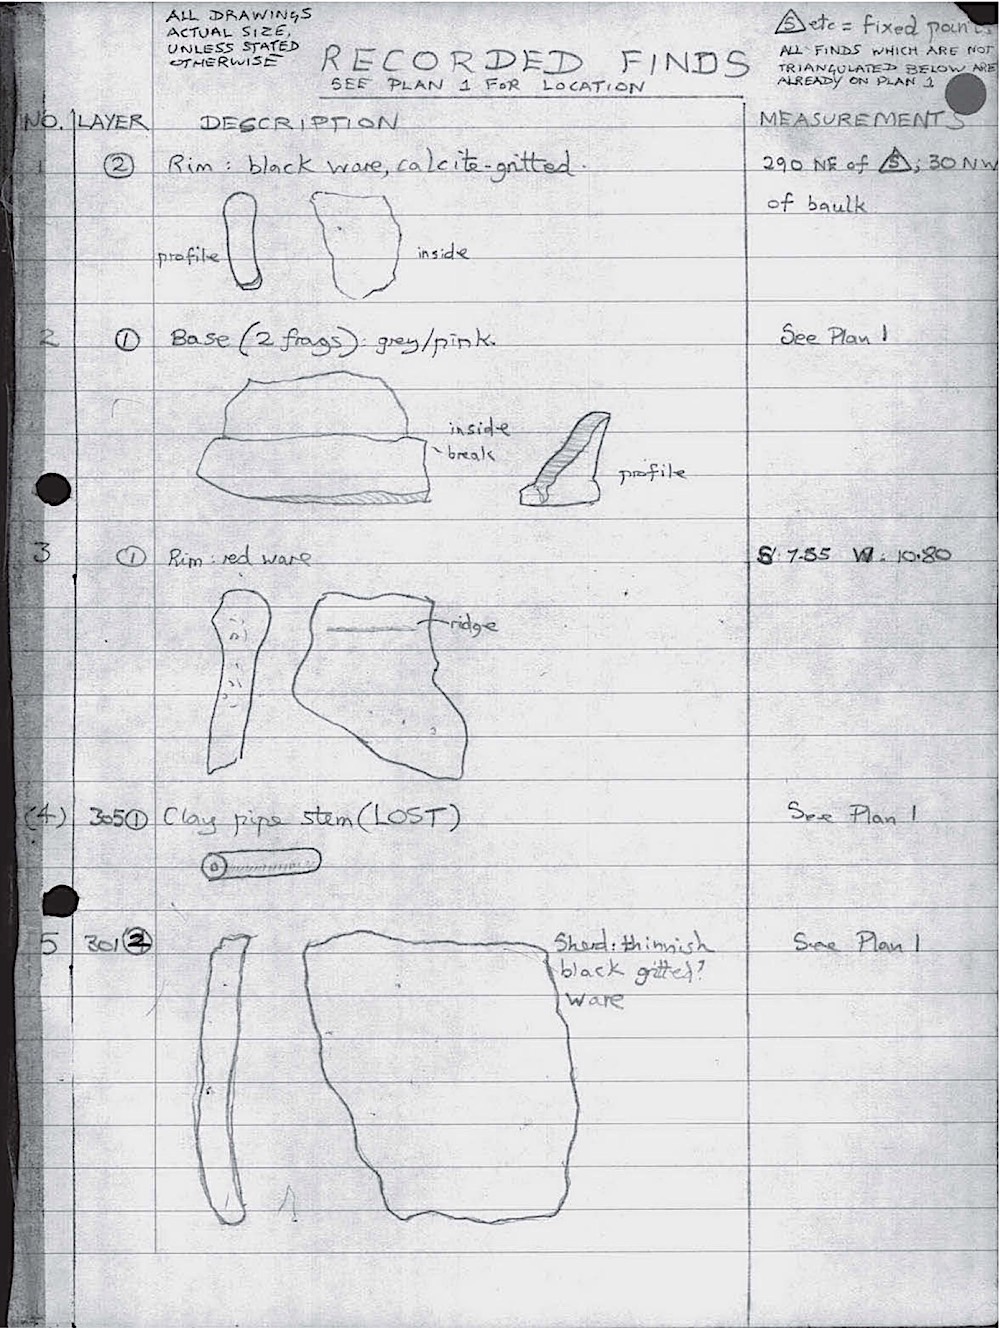 ALL DRAWINGS
ACTUAL SIZE,
UNLESS STATED
OTHERWISE
RECORDED FINDS
SEE PLAN 1 FOR LOCATION
△S etc = fixed points
ALL FINDS WHICH ARE NOT
TRIANGULATED BELOW ARE
ALREADY ON PLAN 1
NO. LAYER DESCRIPTION MEASUREMENTS
1 ② Rim: black ware, calcite-gritted. 290 NE of △S; 30 NW
of baulk
profile inside
2 ① Base (2 frags): grey/pink. See Plan 1
inside
break
profile
3 ① Rim: red ware S 7.55 W: 10.80
ridge
(4) 305① Clay pipe stem (LOST) See Plan 1
5 301② Sherd: thinnish See Plan 1
black gritted?
ware